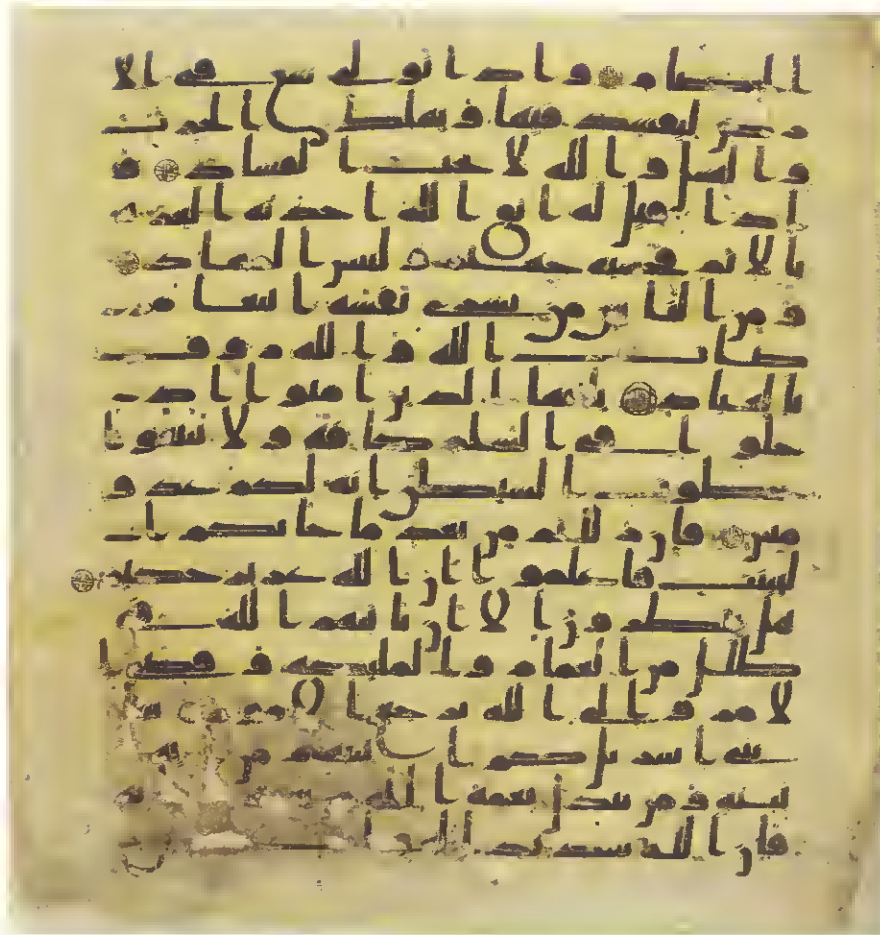 الخصام واذا تولى سعى في الا
رض ليفسد فيها ويهلك الحرث
والنسل والله لا يحب الفساد و
اذا قيل له اتق الله اخذته العزه
بالاثم فحسبه جهنم ولبئس المهاد
ومن الناس من يشري نفسه ابتغا مر
ضات الله والله روف
بالعباد يايها الذين امنوا اد
خلوا في السلم كافه ولا تتبعوا
خطوت الشيطن انه لكم عدو
مبين فان زللتم من بعد ما جاتكم ا
لبينت فاعلموا ان الله عزيز حكيم
هل ينظرون الا ان ياتيهم الله في
ظلل من الغمام والمليكه وقضي ا
لامر والى الله ترجع الامور سل
بني اسريل كم اتينهم من ايه
بينه ومن يبدل نعمه الله من بعد ما جاته
فان الله شديد العقاب